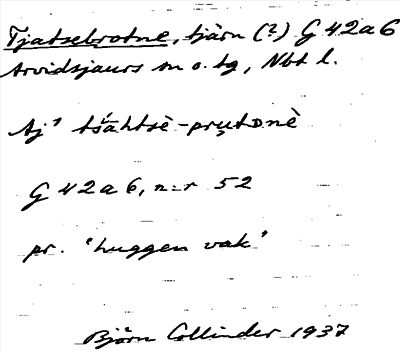 Tjatsebrotne, tjärn (?) G 42 a 6
Arvidsjaurs sn o. tg, Nbt l.
tšāhtsè-prụtɒnè
G 42 a 6, n:r 52
pr. "huggen vak"
Björn Collinder 1937